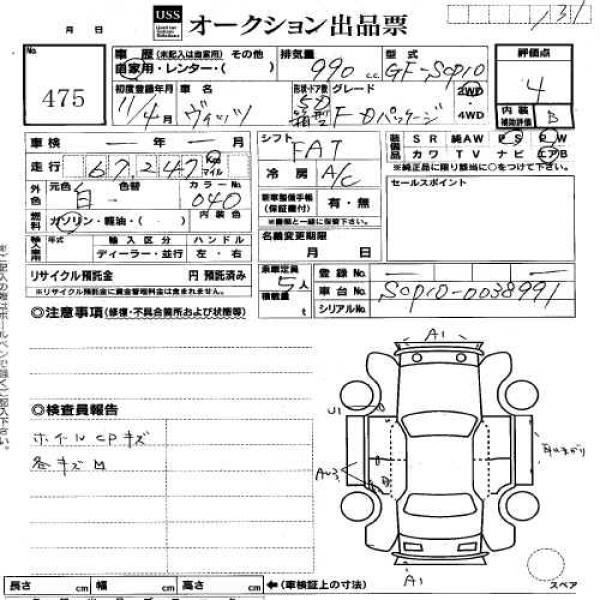 USS オークション出品票
月 日
131
No.
475
車歴(未記入は自家用) その他
自家用・レンター・( )
排気量
990 c.c.
型式
GF-SCP10
評価点
4
内装 補助評価 B
初度登録年月
11/4月
車名
ヴィッツ
形状・ドア数
5D
箱型
グレード
F Dパッケージ
2WD
4WD
車検 ー 年 ー 月
走行 67,247 Km マイル
シフト
FAT
冷房 A/C
装備品
SR 純AW PS PW
カワ TV ナビ エアB
※純正品に限り該当に○をつけて下さい。
外色 元色 白 色替 ー カラーNo. 040
燃料 ガソリン・軽油・( ) 内装色
輸入車用 年式 輸入区分 ハンドル
ディーラー・並行 左・右
新車整備手帳(保証書付) 有・無
※機関と一緒に保管下さい。
名義変更期限
月 日
セールスポイント
リサイクル預託金 円 預託済み
※リサイクル預託金に資金管理料金は含まれません。
乗車定員 5人
積載量 t
登録No. ー ー
車台No. SCP10-0038991
シリアルNo.
◎注意事項(修復・不具合箇所および状態等)
◎検査員報告
ホイールCPキズ
各キズM
A1
U1
AU3
A1
スペア
長さ cm 幅 cm 高さ cm ←(車検証上の寸法)